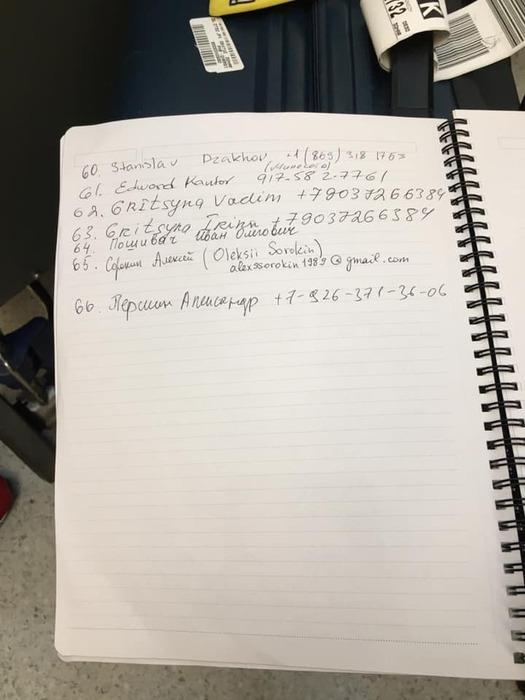 132
K
60. Stanislav Dzakhov +1 (869) 318 1763
61. Edward Kantor 917-582-7761
62. Gritsyna Vadim +79037266384
63. Gritsyna Irina +79037266384
64. Пошивач Иван Олегович
65. Сорокин Алексей (Oleksii Sorokin)
alexssorokin1989@gmail.com
66. Першин Александр +7-926-371-36-06